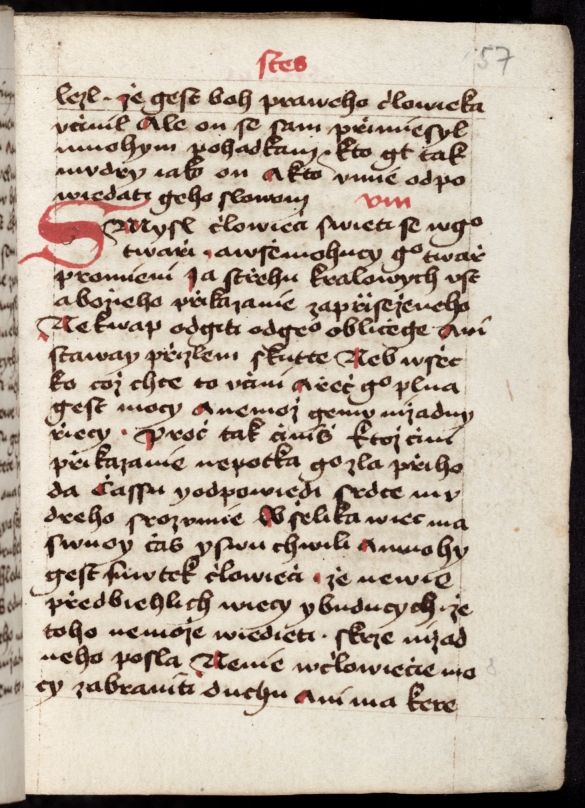 stes
57
lezl · že gest boh praweho člowieka
včinil Ale on se sam przimiesyl
mnohym pohadkam · kto gt tak
mudry iako on A kto vmie odpo
wiedati geho slowom viii
SMysl člowieci swieti se w go
twari · a wssemohucy go twař
promieni Ja střehu kralowych vst
a božieho přikazanie zapřisezeneho
Nekwap odgiti od geo obličege Ani
staway při zlem skutce Neb wsec
ko což chce to včini A řeč go plna
gest mocy A nemoz gemu nižadny
řiecy · Proč tak činiš Ktož čini
přikazanie nepočka go zla přiho
da Čassu y odpowiedi srdce mu
dreho srozumie Wšelika wiec ma
swuoy čas y swu chwili A mnohy
gest smutek člowieci · že newie
předbiehlich wiecy y buducych · že
toho nemože wiedieti · skrze nižad
neho posla Nenie w člowiečie mo
cy zabraniti duchu Ani ma kere